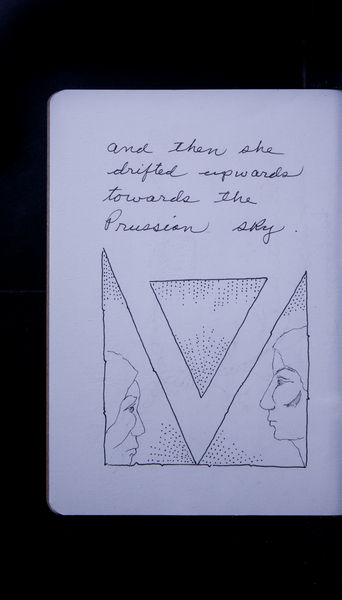 and then she
drifted upwards
towards the
Prussian sky.